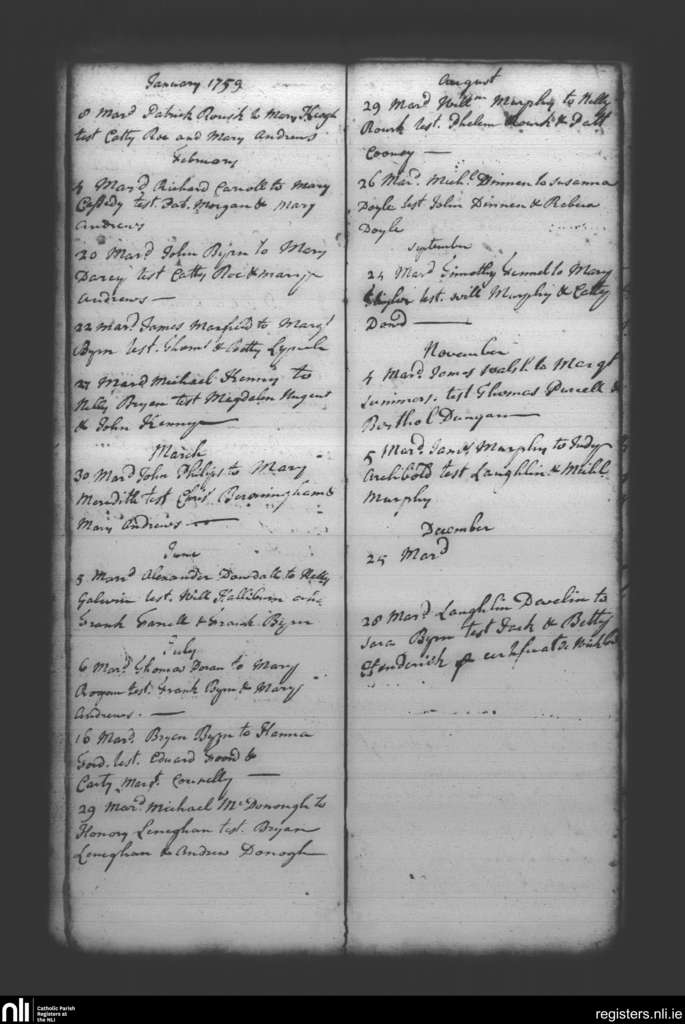 January 1759
8 Mard Patrick Rourk to Mary Keogh
test Catty Roe and Mary Andrews
February
4 Mard Richard Carroll to Mary
Cassedy test. Pat. Morgan & Mary
Andrews
20 Mard John Byrn to Mary
Darcy test Catty Roe & Mary
Andrews —
22 Mard James Maxfield to Margt
Byrn test. Thoms & Catty
27 Mard Michael Kenny to
Nelly Bryan test Magdalen Nugent
& John Kenny —
March
30 Mard John Philips to Mary
Meredith test Chris Bermingham &
Mary Andrews —
June
5 Mard Alexander Dowdall to Nelly
Galwin test. Will Hallibrin and
Frank Farrell & Frank Byrn
July
6 Mard Thomas Doran to Mary
Rogan test. Frank Byrn & Mary
Andrews. —
16 Mard Bryan Byrn to Hanna
Ford. test. Edward Foord &
Carty Margt Connelly —
29 Mard Michael McDonough to
Honory Leneghan test. Bryan
Leneghan & Andrew Donogh
August
29 Mard Willm Murphy to Nelly
Rourk test. Phelem Rourk & Patt
Cooney —
26 Mard Michl Dinnen to Susanna
Doyle test John Dinnen & Rebeca
Doyle
September
24 Mard Timothy Fennel to Mary
test. Will Murphy & Catty
Dowd —
November
4 Mard James Walsh to Margt
Summors. test Thomas Purcell &
Barthol Dungan —
5 Mard James Murphy to Judy
Archbold test Laughlin & Michl
Murphy
December
25 Mard
28 Mard Laughlin Develin to
Sara Byrn test Jack & Betty
certificate
nli
Catholic Parish
Registers at
the NLI
registers.nli.ie